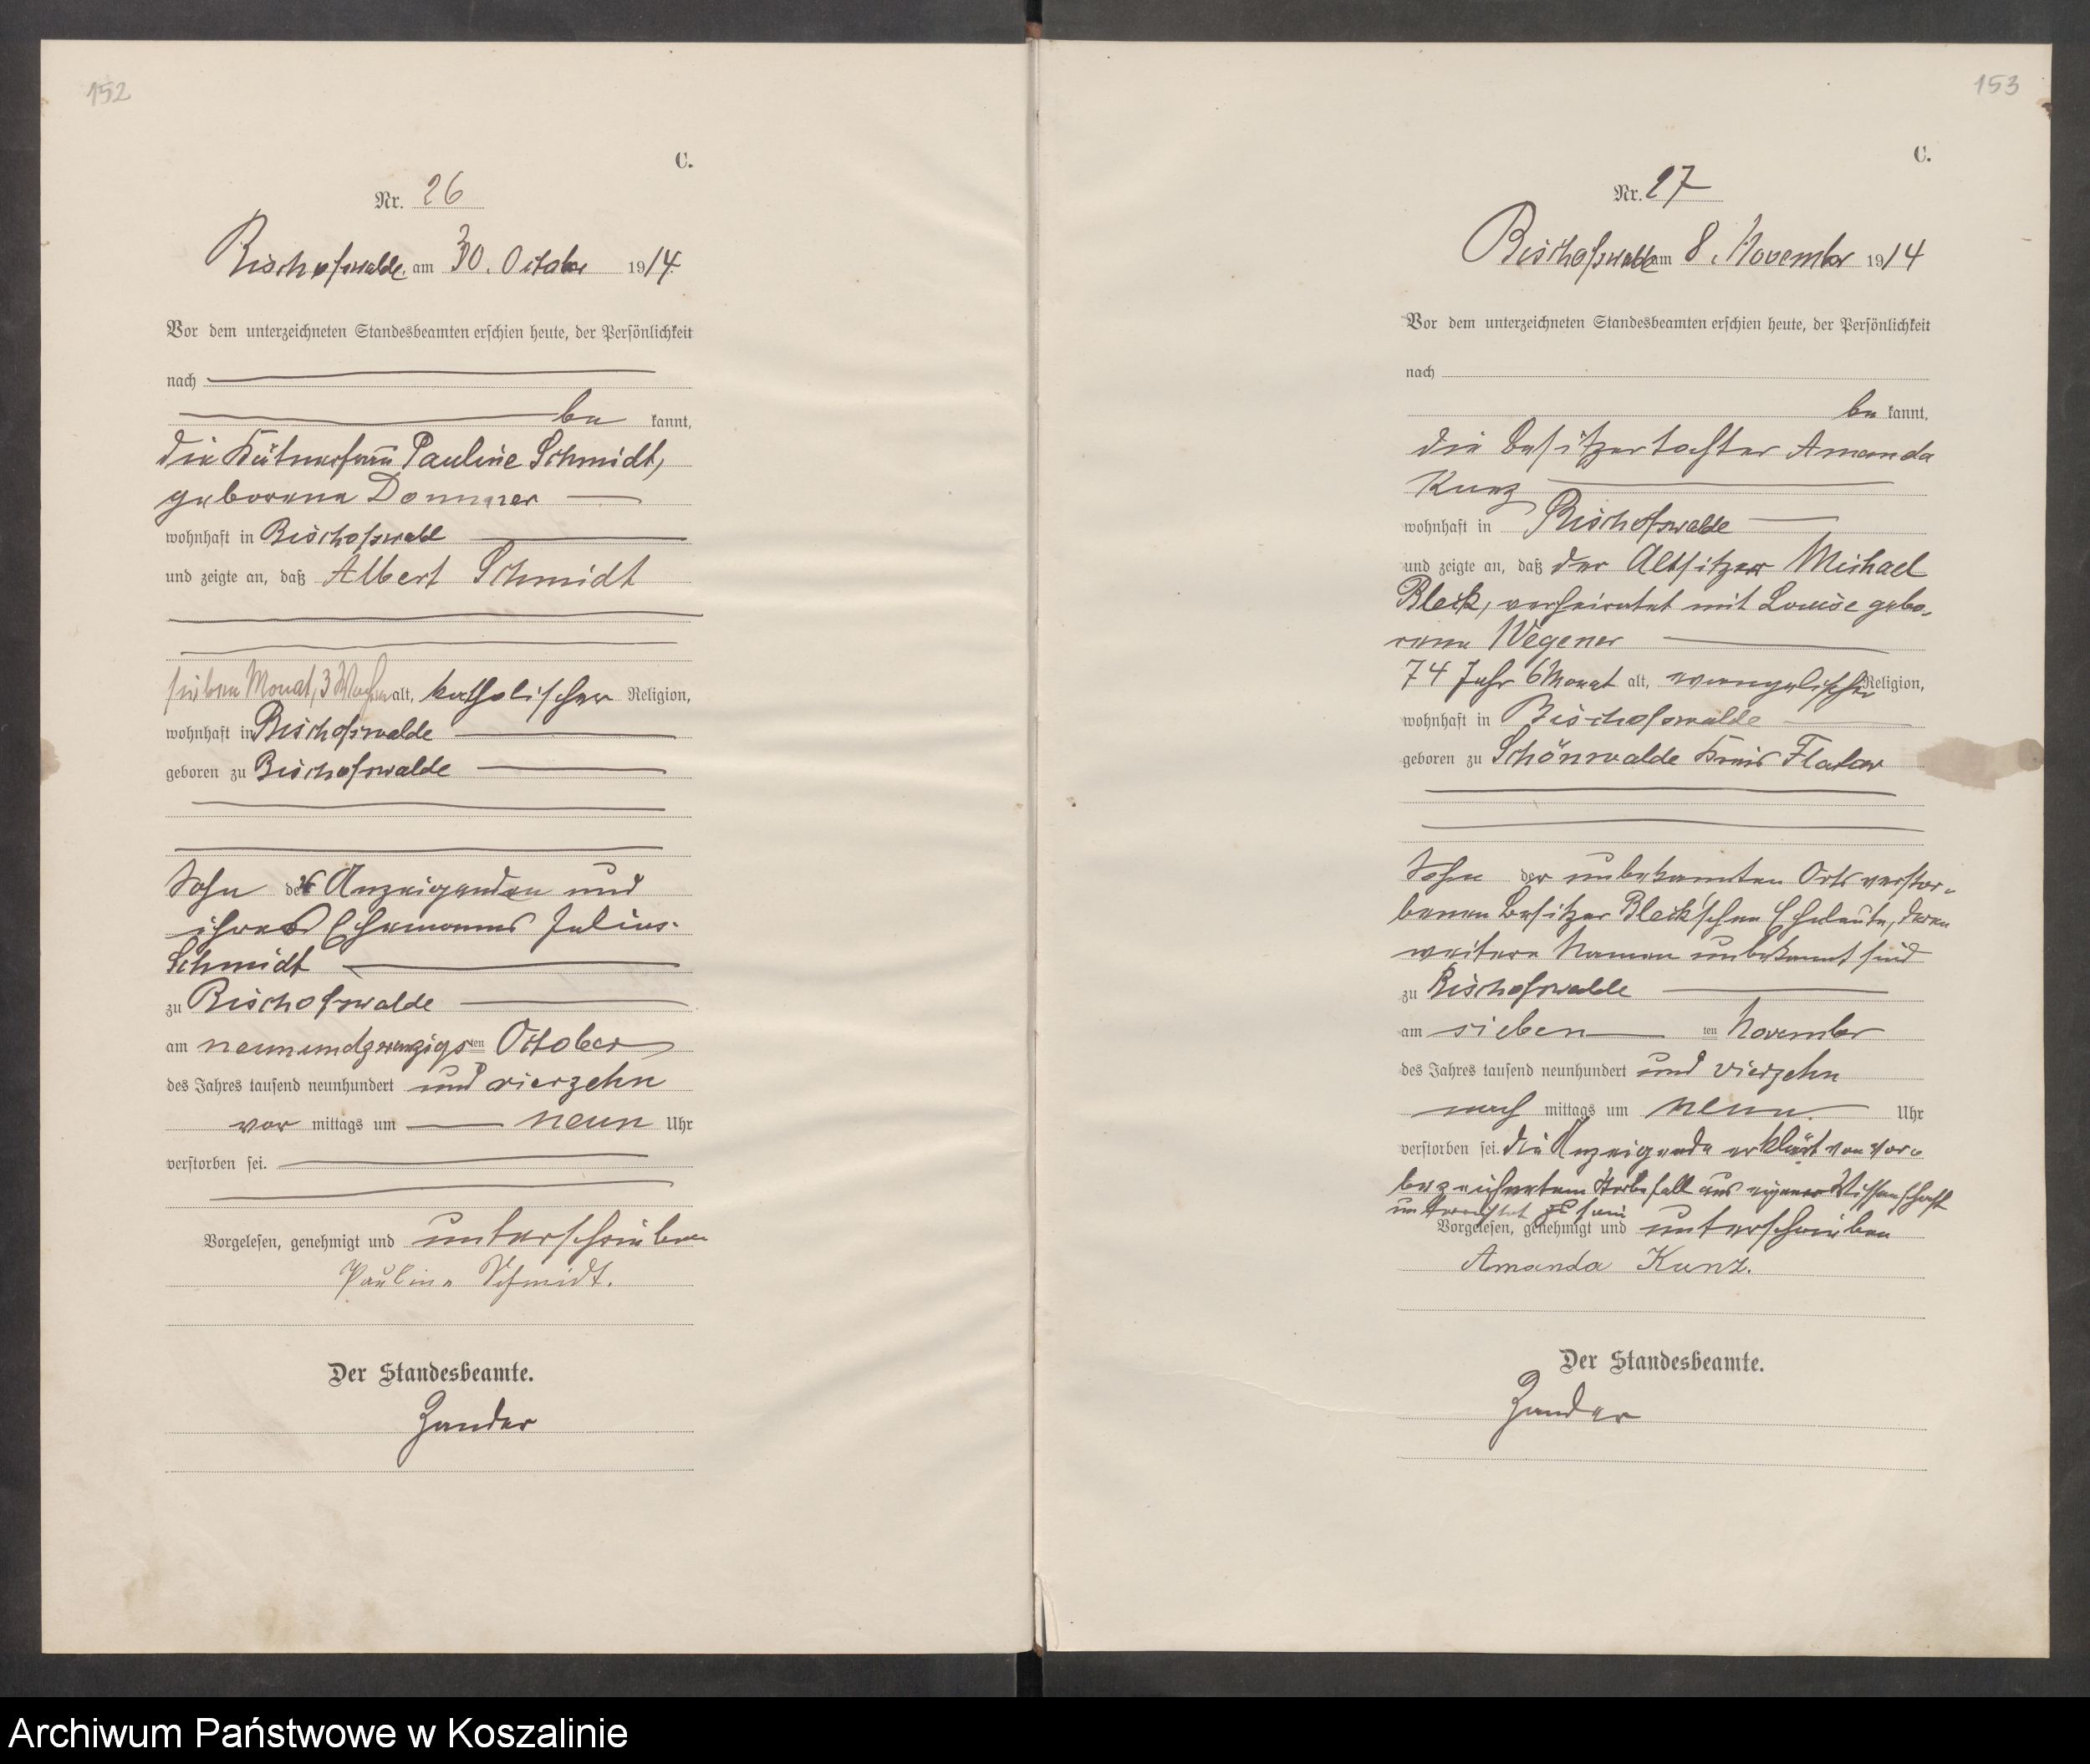 152
C.
Nr. 26
Bischofswalde am 30. October 1914.
Vor dem unterzeichneten Standesbeamten erschien heute, der Persönlichkeit
nach
be kannt,
die Kätnerfrau Pauline Schmidt,
geborene Dommer
wohnhaft in Bischofswald
und zeigte an, daß Albert Schmidt
sieben Monat, 3 Wochen alt, katholischer Religion,
wohnhaft in Bischofswalde
geboren zu Bischofswalde
Sohn der Anzeigenden und
ihres Ehemannes Julius
Schmidt
zu Bischofswalde
am neunundzwanzigsten October
des Jahres tausend neunhundert und vierzehn
vor mittags um neun Uhr
verstorben sei.
Vorgelesen, genehmigt und unterschrieben
Pauline Schmidt.
Der Standesbeamte.
Zander
153
C.
Nr. 27
Bischofswalde am 8. November 1914
Vor dem unterzeichneten Standesbeamten erschien heute, der Persönlichkeit
nach
be kannt,
die Besitzertochter Amanda
Kunz
wohnhaft in Bischofswalde
und zeigte an, daß der Altsitzer Michael
Bleck, verheiratet mit Louise gebo-
rene Wegener
74 Jahr 6 Monat alt, evangelischer Religion,
wohnhaft in Bischofswalde
geboren zu Schönwalde Kreis Flatow
Sohn der unbekannten Orts verstor-
benen Besitzer Bleck'schen Eheleute, deren
weitere Namen unbekannt sind
zu Bischofswalde
am sieben ten November
des Jahres tausend neunhundert und vierzehn
nach mittags um neun Uhr
verstorben sei. Die Anzeigende erklärt von vor-
bezeichnetem Sterbefall aus eigener Wissenschaft
unterrichtet zu sein
Vorgelesen, genehmigt und unterschrieben
Amanda Kunz.
Der Standesbeamte.
Zander
Archiwum Państwowe w Koszalinie